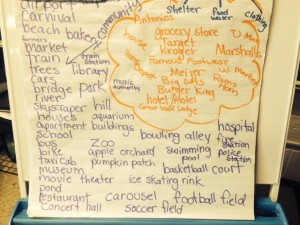 airport
carnival
beach bakery
farmer's
market
train
train station
trees library
cars
bridge park
river
skyscraper hill
houses aquarium
apartment buildings
school
bus zoo
bike apple orchard
taxicab pumpkin patch
museum
movie theater ice skating rink
pond
restaurant carousel football field
concert hall soccer field
bowling alley
swimming
pool
basketball court
hospital
fire
station
police
station
community
music
authority
shelter
food
water
clothing
Antonios
grocery store
Target
Kroger
Marshalls
house
Famous Footwear
Meijer
Big Lots
Burger King
hotel/motel
Great Wolf Lodge